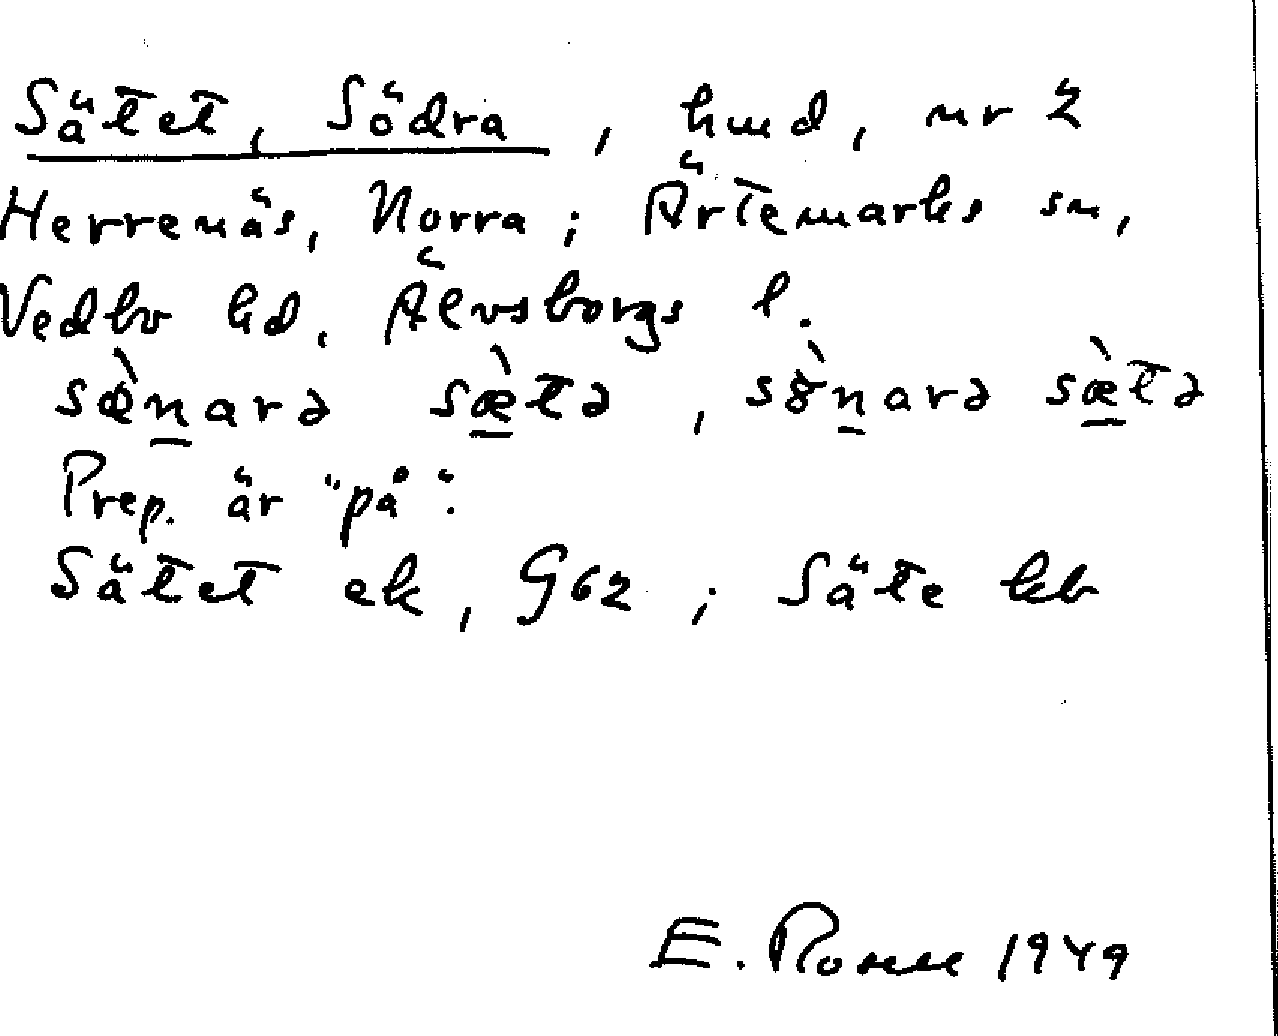 Sätet, Södra, hmd, nr 2
Herrenäs, Norra; Ärtemarks sn,
Vedbo hd, Älvsborgs l.
sœ̀narə sæ̀tə, sø̀narə sæ̀tə
Prep. är "på".
Sätet ek, G62; Säte kb
E. Rosell 1949